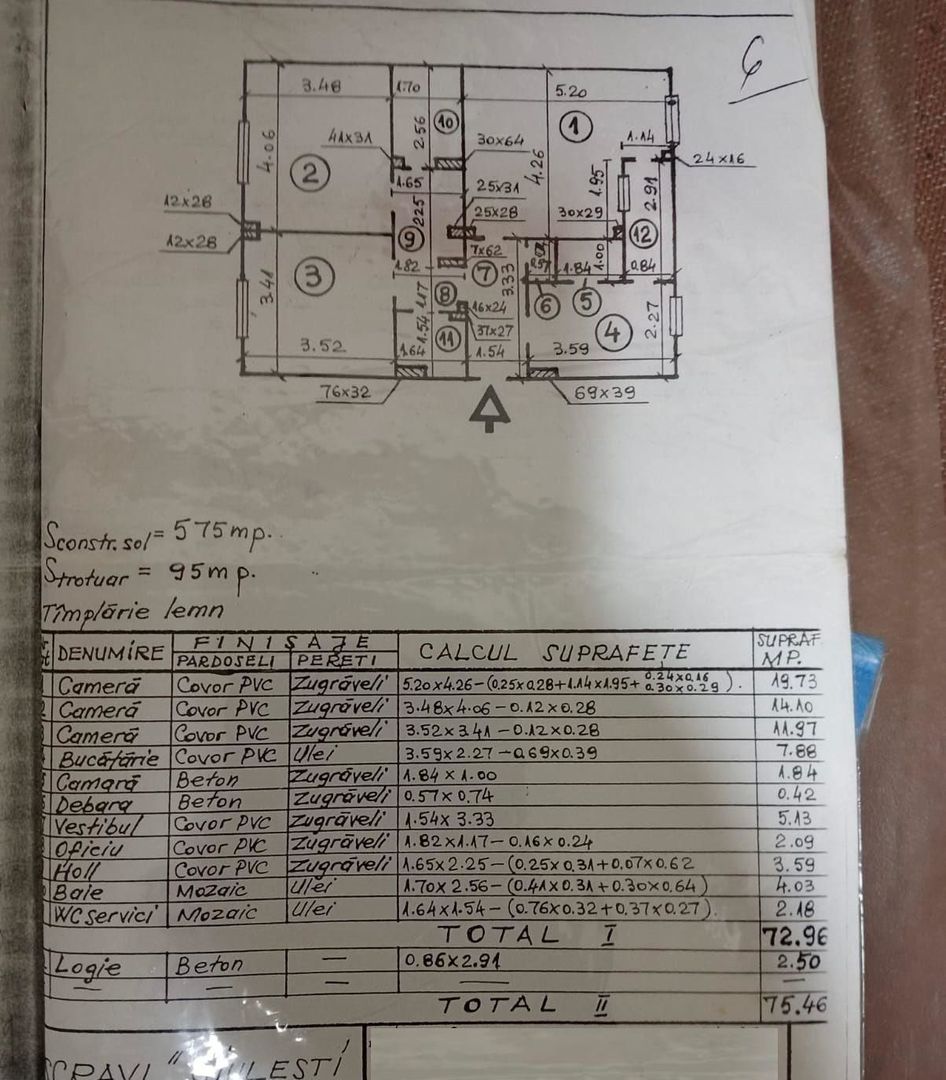 6
3.48
1.70
5.20
41x31
2.56
10
30x64
1
1.14
24x16
4.06
2
4.26
1.95
2.91
1.65
25x31
12x28
225
25x28
30x29
12
12x28
9
7x62
7
1.82
3.33
1.84
1.00
0.84
3.41
3
1.17
8
16x24
6
5
37x27
1.54
11
4
2.27
3.52
1.64
1.54
3.59
76x32
69x39
Sconstr. sol = 575mp.
Strotuar = 95mp.
Tîmplărie lemn
DENUMIRE FINISAJE CALCUL SUPRAFEȚE SUPRAF MP.
PARDOSELI PEREȚI
Cameră Covor PVC Zugrăveli 5.20x4.26-(0.25x0.28+1.14x1.95+0.24x0.16 0.30x0.29). 19.73
Cameră Covor PVC Zugrăveli 3.48x4.06-0.12x0.28 14.10
Cameră Covor PVC Zugrăveli 3.52x3.41-0.12x0.28 11.97
Bucătărie Covor PVC Ulei 3.59x2.27-0.69x0.39 7.88
Cămară Beton Zugrăveli 1.84x1.00 1.84
Debara Beton Zugrăveli 0.57x0.74 0.42
Vestibul Covor PVC Zugrăveli 1.54x3.33 5.13
Oficiu Covor PVC Zugrăveli 1.82x1.17-0.16x0.24 2.09
Holl Covor PVC Zugrăveli 1.65x2.25-(0.25x0.31+0.07x0.62 3.59
Baie Mozaic Ulei 1.70x2.56-(0.41x0.31+0.30x0.64) 4.03
WC servici Mozaic Ulei 1.64x1.54-(0.76x0.32+0.37x0.27). 2.18
TOTAL I 72.96
Logie Beton — 0.86x2.91 2.50
— — — — —
TOTAL II 75.46